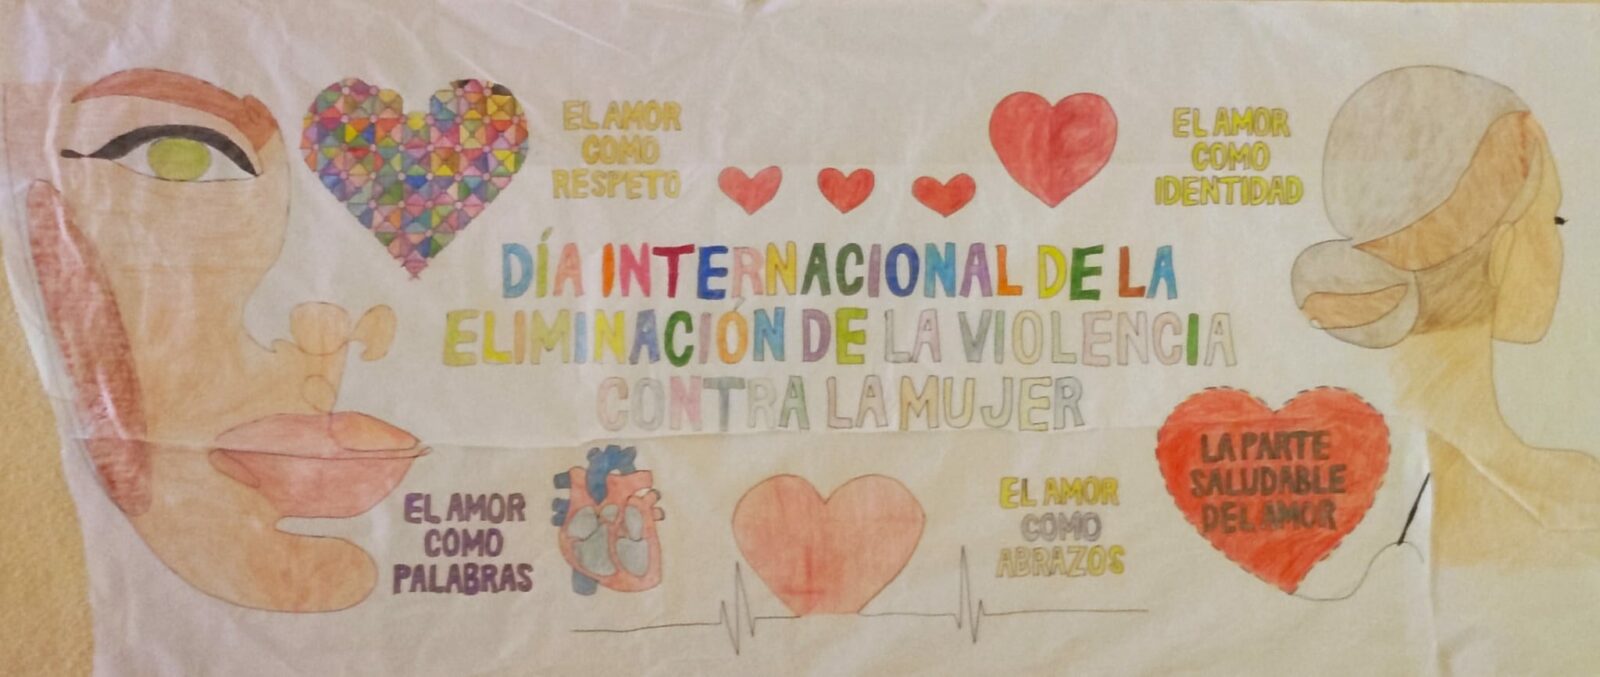 EL AMOR
COMO
RESPETO
EL AMOR
COMO
IDENTIDAD
DÍA INTERNACIONAL DE LA
ELIMINACIÓN DE LA VIOLENCIA
CONTRA LA MUJER
EL AMOR
COMO
PALABRAS
EL AMOR
COMO
ABRAZOS
LA PARTE
SALUDABLE
DEL AMOR